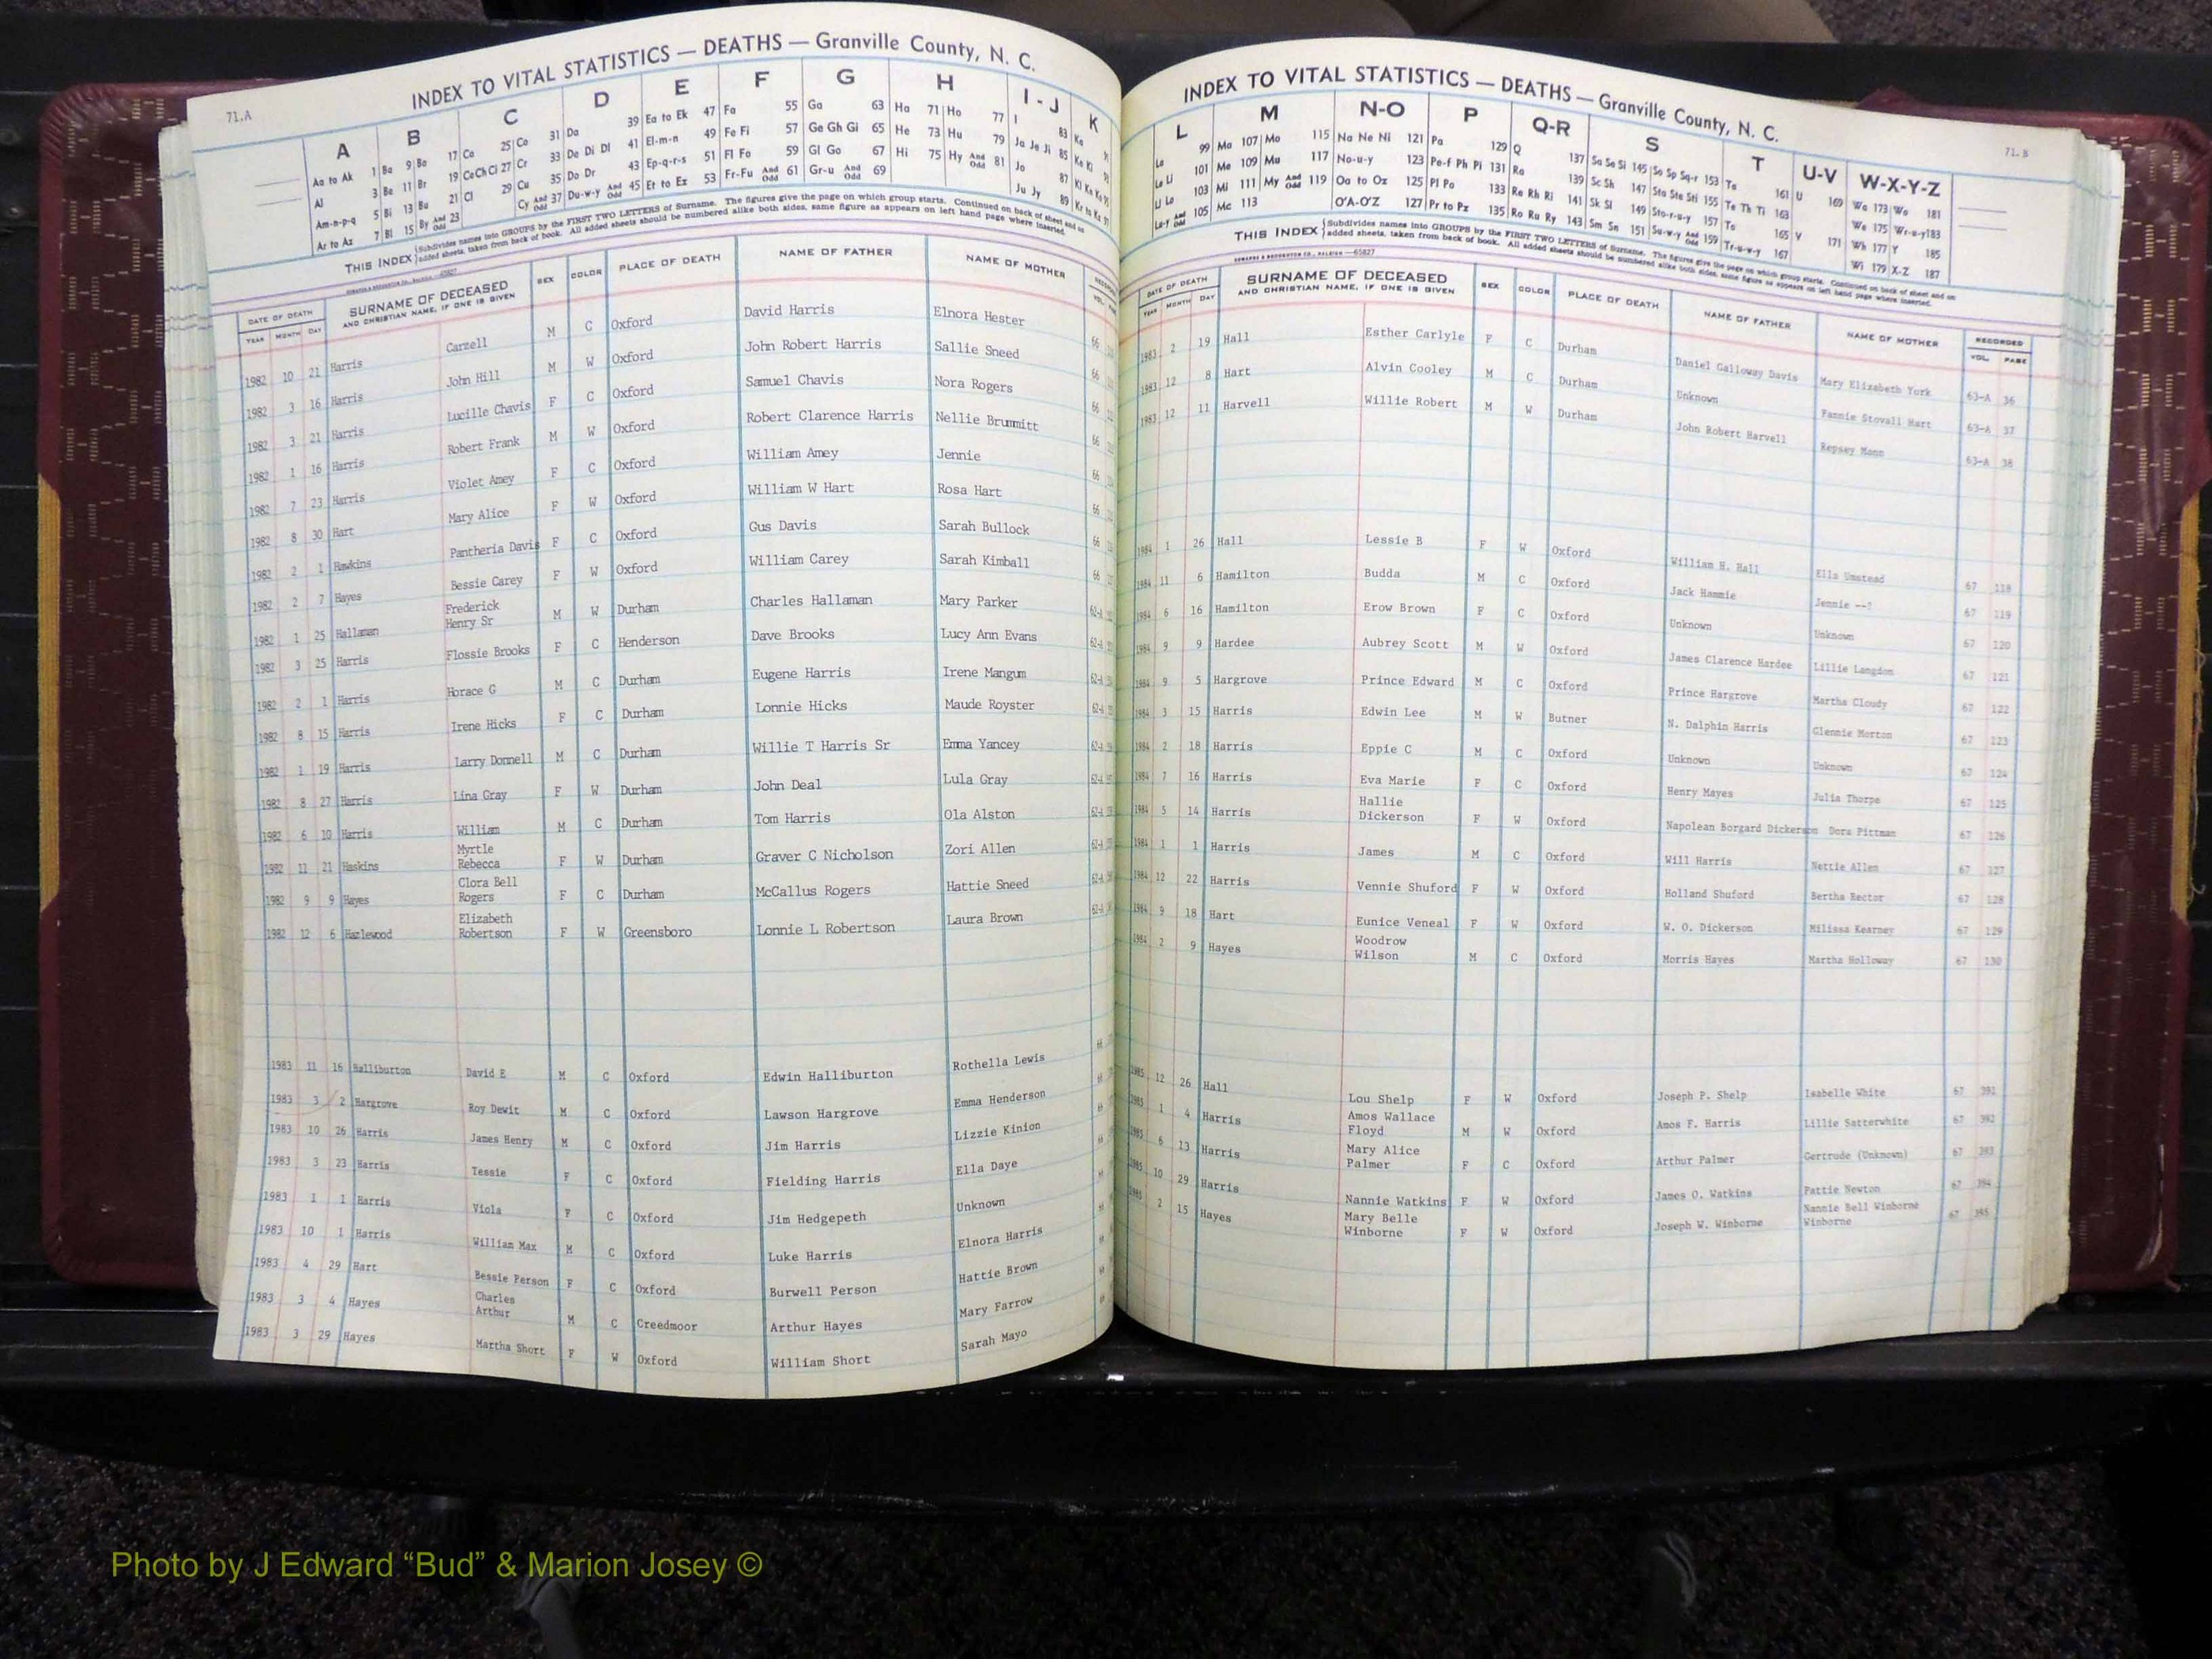 71.A
INDEX TO VITAL STATISTICS — DEATHS — Granville County, N. C.
A B C D E F G H I - J K
Aa to Ak 1 Ba 9 Bo 17 Ca 25 Co 31 Da 39 Ea to Ek 47 Fa 55 Ga 63 Ha 71 Ho 77 I 83 Ka
Al 3 Be 11 Br 19 Ce Ch Ci 27 Cr 33 De Di Dl 41 El-m-n 49 Fe Fi 57 Ge Gh Gi 65 He 73 Hu 79 Ja Je Ji 85 Ke Ki
Am-n-p-q 5 Bi 13 Bu 21 Cl 29 Cu 35 Do Dr 43 Ep-q-r-s 51 Fl Fo 59 Gl Go 67 Hi 75 Hy And Odd 81 Jo 87
Ar to Az 7 Bl 15 By And Odd 23 Cy And Odd 37 Du-w-y And Odd 45 Et to Ez 53 Fr-Fu And Odd 61 Gr-u And Odd 69 Ju Jy 89
THIS INDEX Subdivides names into GROUPS by the FIRST TWO LETTERS of Surname. The figures give the page on which group starts. Continued on back of sheet and on
added sheets, taken from back of book. All added sheets should be numbered alike both sides, same figure as appears on left hand page where inserted.
DATE OF DEATH SURNAME OF DECEASED SEX COLOR PLACE OF DEATH NAME OF FATHER NAME OF MOTHER
YEAR MONTH DAY AND CHRISTIAN NAME, IF ONE IS GIVEN VOL.
1982 10 21 Harris Carzell M C Oxford David Harris Elnora Hester 66
1982 3 16 Harris John Hill M W Oxford John Robert Harris Sallie Sneed 66
1982 3 21 Harris Lucille Chavis F C Oxford Samuel Chavis Nora Rogers 66
1982 1 16 Harris Robert Frank M W Oxford Robert Clarence Harris Nellie Brummitt 66
1982 7 23 Harris Violet Amey F C Oxford William Amey Jennie 66
1982 8 30 Hart Mary Alice F W Oxford William W Hart Rosa Hart 66
1982 2 1 Hawkins Pantheria Davis F C Oxford Gus Davis Sarah Bullock 66
1982 2 7 Hayes Bessie Carey F W Oxford William Carey Sarah Kimball 66
1982 1 25 Hallaman Frederick Henry Sr M W Durham Charles Hallaman Mary Parker 62-A
1982 3 25 Harris Flossie Brooks F C Henderson Dave Brooks Lucy Ann Evans 62-A
1982 2 1 Harris Horace G M C Durham Eugene Harris Irene Mangum 62-A
1982 8 15 Harris Irene Hicks F C Durham Lonnie Hicks Maude Royster 62-A
1982 1 19 Harris Larry Donnell M C Durham Willie T Harris Sr Emma Yancey 62-A
1982 8 27 Harris Lina Gray F W Durham John Deal Lula Gray 62-A
1982 6 10 Harris William M C Durham Tom Harris Ola Alston 62-A
1982 11 21 Haskins Myrtle Rebecca F W Durham Graver C Nicholson Zori Allen 62-A
1982 9 9 Hayes Clora Bell Rogers F C Durham McCallus Rogers Hattie Sneed 62-A
1982 12 6 Hazlewood Elizabeth Robertson F W Greensboro Lonnie L Robertson Laura Brown 62-A
1983 11 16 Halliburton David E M C Oxford Edwin Halliburton Rothella Lewis 66
1983 3 2 Hargrove Roy Dewit M C Oxford Lawson Hargrove Emma Henderson 66
1983 10 26 Harris James Henry M C Oxford Jim Harris Lizzie Kinion 66
1983 3 23 Harris Tessie F C Oxford Fielding Harris Ella Daye 66
1983 1 1 Harris Viola F C Oxford Jim Hedgepeth Unknown 66
1983 10 1 Harris William Max M C Oxford Luke Harris Elnora Harris 66
1983 4 29 Hart Bessie Person F C Oxford Burwell Person Hattie Brown 66
1983 3 4 Hayes Charles Arthur M C Creedmoor Arthur Hayes Mary Farrow 66
1983 3 29 Hayes Martha Short F W Oxford William Short Sarah Mayo
71. B
INDEX TO VITAL STATISTICS — DEATHS — Granville County, N. C.
L M N-O P Q-R S T U-V W-X-Y-Z
La 99 Ma 107 Mo 115 Na Ne Ni 121 Pa 129 Q 137 Sa Se Si 145 So Sp Sq-r 153 Ta 161 U 169 Wa 173 Wo 181
Le Li 101 Me 109 Mu 117 No-u-y 123 Pe-f Ph Pi 131 Ra 139 Sc Sh 147 Sta Ste Sti 155 Te Th Ti 163 We 175 Wr-u-y 183
Ll Lo 103 Mi 111 My And Odd 119 Oa to Oz 125 Pl Po 133 Re Rh Ri 141 Sk Sl 149 Sto-r-u-y 157 To 165 V 171 Wh 177 Y 185
Lu-y And Odd 105 Mc 113 O'A-O'Z 127 Pr to Pz 135 Ro Ru Ry 143 Sm Sn 151 Su-w-y And Odd 159 Tr-u-w-y 167 Wi 179 X-Z 187
THIS INDEX Subdivides names into GROUPS by the FIRST TWO LETTERS of Surname. The figures give the page on which group starts. Continued on back of sheet and on
added sheets, taken from back of book. All added sheets should be numbered alike both sides, same figure as appears on left hand page where inserted.
DATE OF DEATH SURNAME OF DECEASED SEX COLOR PLACE OF DEATH NAME OF FATHER NAME OF MOTHER RECORDED
YEAR MONTH DAY AND CHRISTIAN NAME, IF ONE IS GIVEN VOL. PAGE
1983 2 19 Hall Esther Carlyle F C Durham Daniel Galloway Davis Mary Elizabeth York 63-A 36
1983 12 8 Hart Alvin Cooley M C Durham Unknown Fannie Stovall Hart 63-A 37
1983 12 11 Harvell Willie Robert M W Durham John Robert Harvell Repsey Mann 63-A 38
1984 1 26 Hall Lessie B F W Oxford William H. Hall Ella Umstead 67 118
1984 11 6 Hamilton Budda M C Oxford Jack Hammie Jennie --? 67 119
1984 6 16 Hamilton Erow Brown F C Oxford Unknown Unknown 67 120
1984 9 9 Hardee Aubrey Scott M W Oxford James Clarence Hardee Lillie Langdon 67 121
1984 9 5 Hargrove Prince Edward M C Oxford Prince Hargrove Martha Cloudy 67 122
1984 3 15 Harris Edwin Lee M W Butner N. Dalphin Harris Glennie Morton 67 123
1984 2 18 Harris Eppie C M C Oxford Unknown Unknown 67 124
1984 7 16 Harris Eva Marie F C Oxford Henry Mayes Julia Thorpe 67 125
1984 5 14 Harris Hallie Dickerson F W Oxford Napolean Borgard Dickerson Dora Pittman 67 126
1984 1 1 Harris James M C Oxford Will Harris Nettie Allen 67 127
1984 12 22 Harris Vennie Shuford F W Oxford Holland Shuford Bertha Rector 67 128
1984 9 18 Hart Eunice Veneal F W Oxford W. O. Dickerson Milissa Kearney 67 129
1984 2 9 Hayes Woodrow Wilson M C Oxford Morris Hayes Martha Holloway 67 130
1985 12 26 Hall Lou Shelp F W Oxford Joseph P. Shelp Isabelle White 67 391
1985 1 4 Harris Amos Wallace Floyd M W Oxford Amos F. Harris Lillie Satterwhite 67 392
1985 6 13 Harris Mary Alice Palmer F C Oxford Arthur Palmer Gertrude (Unknown) 67 393
1985 10 29 Harris Nannie Watkins F W Oxford James O. Watkins Pattie Newton 67 394
1985 2 15 Hayes Mary Belle Winborne F W Oxford Joseph W. Winborne Nannie Bell Winborne Winborne 67 395
Photo by J Edward “Bud” & Marion Josey ©